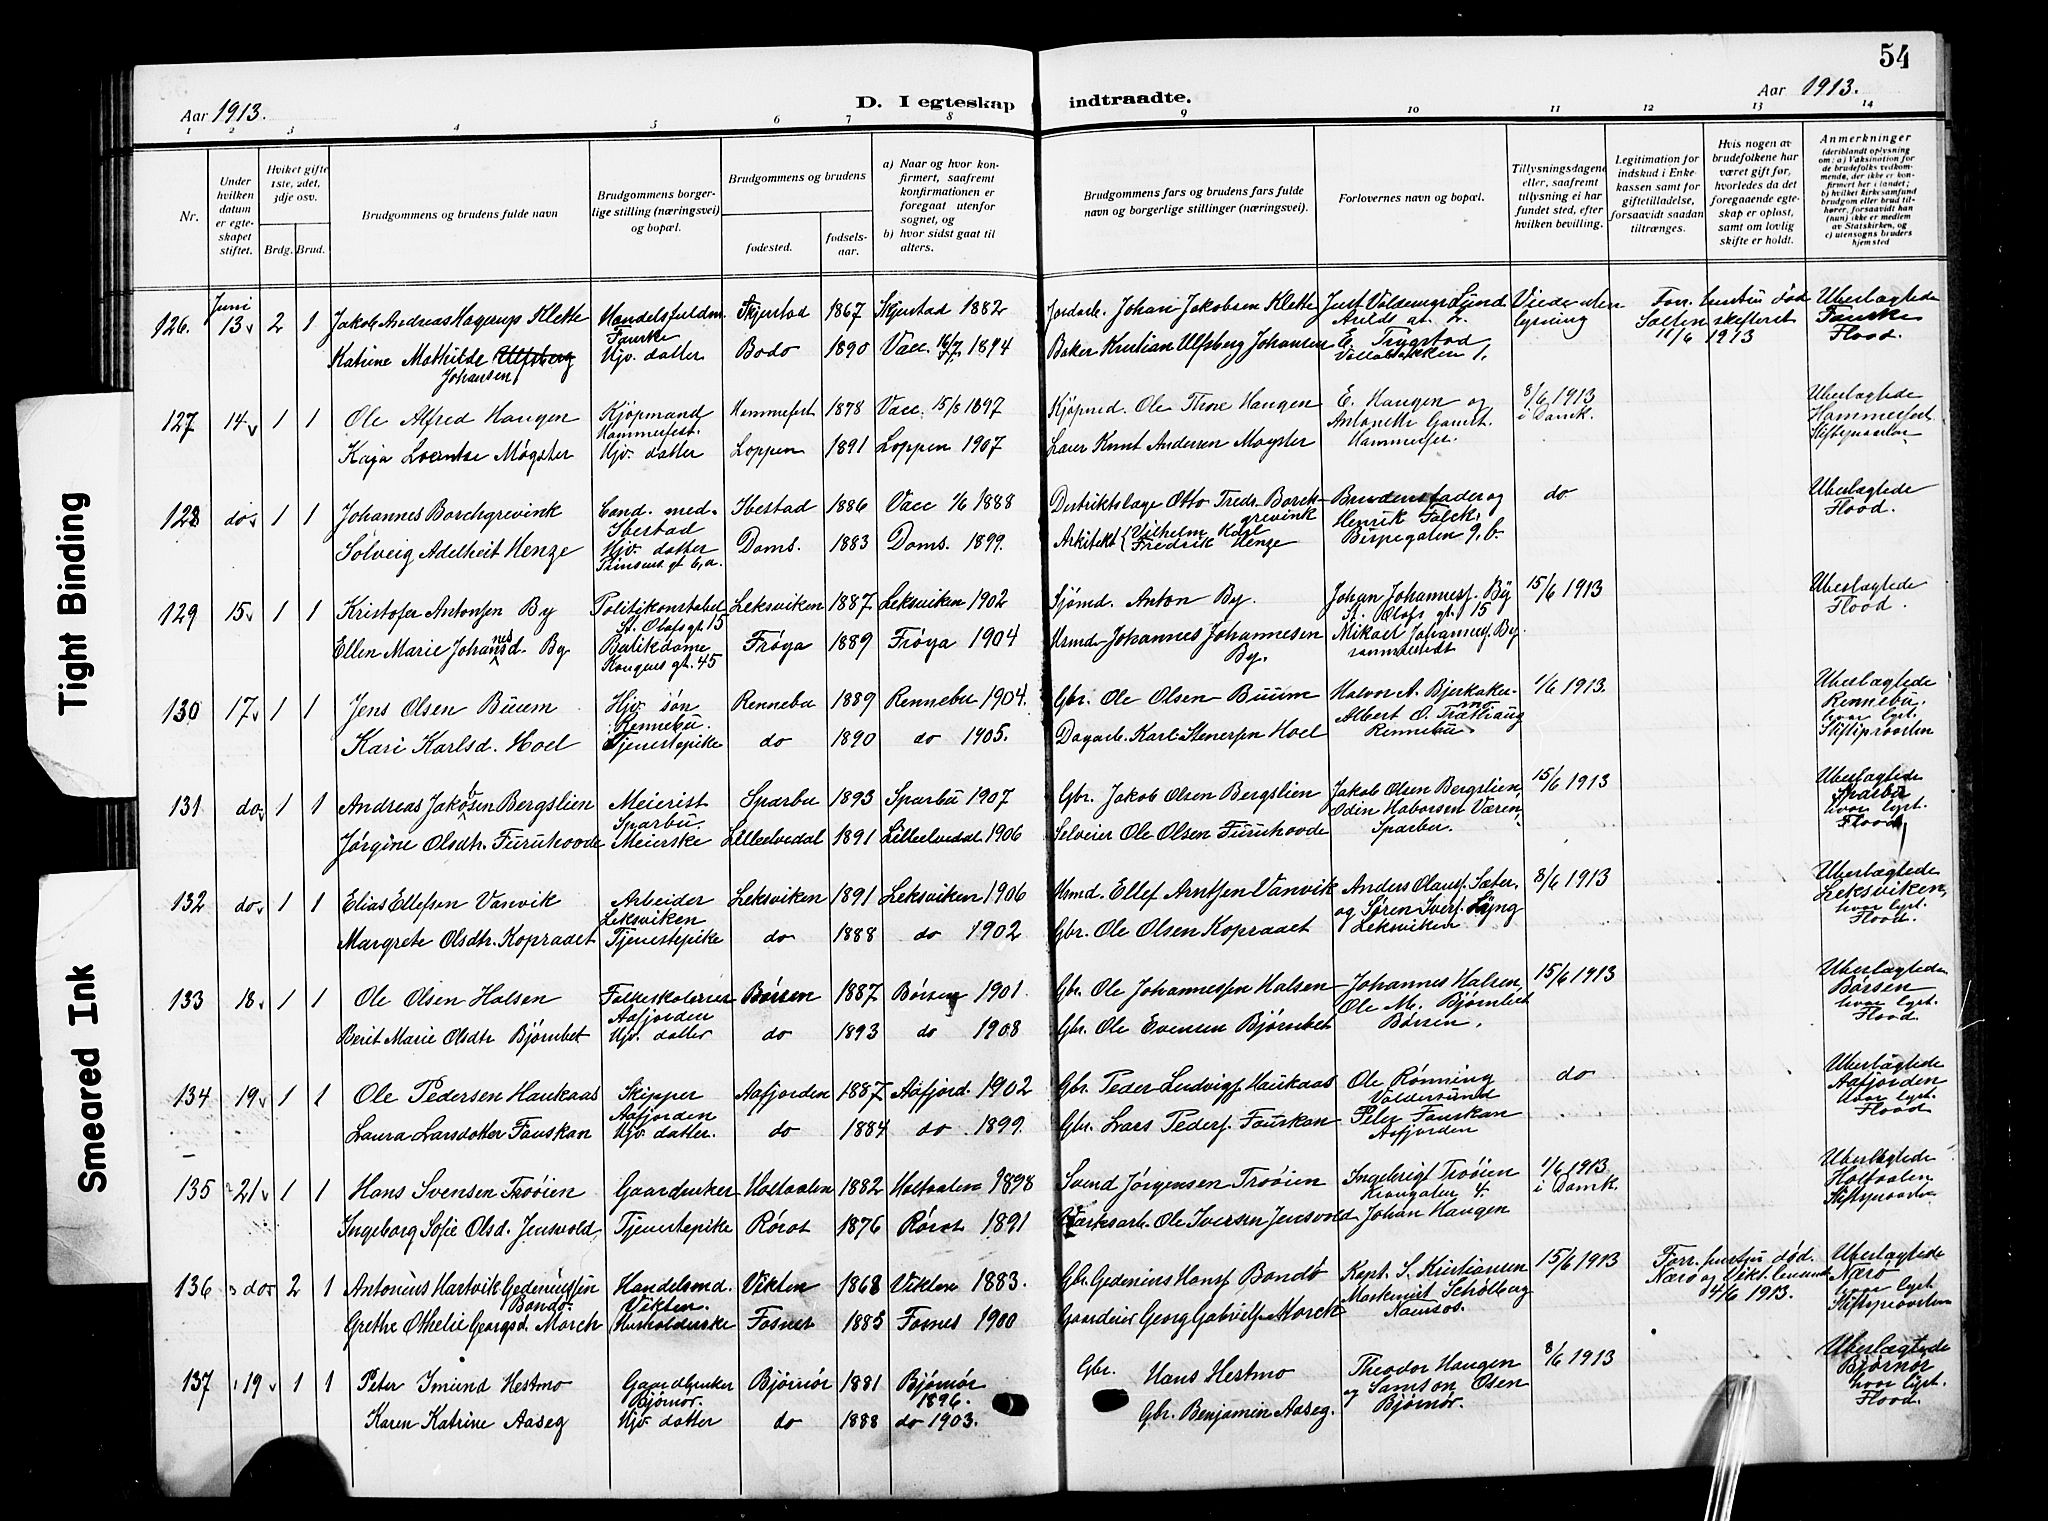 54
Aar 1913.
D. I egteskap indtraadte.
Aar 1913.
1 2 3 4 5 6 7 8 9 10 11 12 13 14
Nr.
Under hvilken datum er egteskapet stiftet.
Hvilket gifte 1ste, 2det, 3dje osv.
Brdg. Brud.
Brudgommens og brudens fulde navn
Brudgommens borgerlige stilling (næringsvei) og bopæl.
Brudgommens og brudens
fødested.
fødselsaar.
a) Naar og hvor konfirmert, saafremt konfirmationen er foregaat utenfor sognet, og
b) hvor sidst gaat til alters.
Brudgommens fars og brudens fars fulde navn og borgerlige stillinger (næringsvei).
Forlovernes navn og bopæl.
Tillysningsdagene eller, saafremt tillysning ei har fundet sted, efter hvilken bevilling.
Legitimation for indskud i Enkekassen samt for giftetilladelse, forsaavidt saadan tiltrænges.
Hvis nogen av brudefolkene har været gift før, hvorledes da det foregaaende egteskap er opløst, samt om lovlig skifte er holdt.
Anmerkninger
(deriblandt oplysning om: a) Vaksination for de brudefolks vedkommende, der ikke er konfirmert her i landet; b) hvilket kirkesamfund brudgom eller brud tilhører, forsaavidt han (hun) ikke er medlem av Statskirken, og c) utensogns bruders hjemsted
Juni
126. 13 2 1 Jakob Andreas Hagerup Klette Handelsfuldm. Skjerstad 1867 Skjerstad 1882 Jordarb. Johan Jakobsen Klette Just Voldemar Lund Viede uten Forr. hustru død Uberlagtede
Fauske Arilds gt. lysning Salten skifteret Fauske
Katrine Mathilde Ulfsberg Hjv. datter Bodø 1890 Vacc. 16/7 1894 Baker Kristian Ulfsberg Johansen E. Trygstad 11/6 1913 Flood.
Johansen
127 14 1 1 Ole Alfred Haugen Kjøpmand Hammerfest 1878 Vacc. 15/8 1897 Kjøpmd. Ole Thne Haugen E. Haugen og 8/6 1913 Uberlagtede
Hammerfest. Antonette i Domk. Hammerfest
Kaja Lorentze Møgster Hjv. datter Loppen 1891 Loppen 1907 Lærer Knut Andersen Møgster Hammerfest. Stiftsprovsten
128 do 1 1 Johannes Borchgrevink Cand. med. Ibestad 1886 Vacc 1/6 1888 Distriktslæge Otto Fredr. Borchgrevink Brudens fader og do Uberlagtede
Ibestad Henrik Falck, Flood.
Sølveig Adelheit Henze Hjv. datter Doms. 1883 Doms. 1899. Arkitekt Vilhelm Karl Fredrik Henze Bispegaten 9, b.
Prinsens gt 6, a.
129 15 1 1 Kristofer Antonsen By Politikonstabel Leksviken 1887 Leksviken 1902 Sjømd. Anton By. Johan Johannesf. By 15/6 1913 Uberlagtede
St. Olafs gt. 15 St. Olafs gt. 15 Flood.
Ellen Marie Johannesd. By Butikdame Frøya 1889 Frøya 1904 Johannes Johannesen By. Mikael Johannesf. By
Kongens gt. 45 sammesteds
130 17 1 1 Jens Olsen Buum Hjv. søn Rennebu 1889 Rennebu 1904. Gbr. Ole Olsen Buum Halvor A. Bjerkaker 1/6 1913. Uberlagtede
Rennebu. Albert O. Trætthaug Rennebu,
Kari Karlsd. Hoel Tjenestepike do 1890 do 1905. Dagarb. Karl Stenersen Hoel Rennebu hvor lyst.
Stiftsprovsten
131 do 1 1 Andreas Jakobsen Bergslien Meierist Sparbu 1893 Sparbu 1907 Gbr. Jakob Olsen Bergslien Jakob Olsen Bergslien, 15/6 1913 Uberlagtede
Sparbu. Odin Haborsen Væren, Sparbu
Jørgine Olsdtr. Furuhovde Meierske Lilleelvedal 1891 Lilleelvedal 1906 Selveier Ole Olsen Furuhovde Sparbu. hvor lyst.
Flood
132 do 1 1 Elias Ellefsen Vanvik Arbeider Leksviken 1891 Leksviken 1906 Hsmd. Ellef Arntsen Vanvik Anders Olausf. Sæter. 8/6 1913 Uberlagtede
Leksviken og Søren Iversf. Lyng Leksviken,
Margrete Olsdtr. Kopraaet Tjenestepike do 1888 do 1902 Gbr. Ole Olsen Kopraaet Leksviken hvor lyst.
Flood.
133 18 1 1 Ole Olsen Halsen Folkeskolelærer Børsen 1887 Børsen 1901. Gbr. Ole Johannessen Halsen Johannes Halsen, 15/6 1913 Uberlagtede
Aafjorden Ole M. Bjørnbet Børsen
Berit Marie Olsdtr Bjørnbet Hjv. datter do 1893 do 1908 Gbr. Ole Evensen Bjørnbet Børsen. hvor lyst.
Flood.
134 19 1 1 Ole Pedersen Haukaas Skipper Aafjorden 1887 Aafjord. 1902 Gbr. Peder Ludvigf. Haukaas Ole Rønning do Uberlagtede
Aafjorden Valdersund Aafjorden
Laura Larsdatter Fauskan Hjv. datter. do 1884 do 1899. Gbr. Lars Pedersf. Fauskan Peter Fauskan hvor lyst.
Aafjorden Flood
135 21 1 1 Hans Svensen Trøøien Gaardbruker Holtaalen 1882 Holtaalen 1898 Svend Jørgensen Trøøien Ingebrigt Trøøien 1/6 1913 Uberlagtede
Krongaten 4. i Domk. Holtaalen
Ingeborg Sofie Olsd. Jensvold Tjenestepike Røros 1876 Røros 1891 Verksarb. Ole Iversen Jensvold Johan Haugen Stiftsprovsten
136 do 2 1 Antonius Hartvik Gedeniussen Handelsmd. Vikten 1868 Vikten 1883. Gbr. Gedenius Hansf. Bondø Kapt. S. Kristiansen 15/6 1913 Forr. hustru død. Uberlagtede
Bondø. Vikten. Schølberg Nærø og Vikt. Nærø
Grethe Othelie Georgsd. Morch Husholderske Fosnes 1885 Fosnes 1900 Gaardeier Georg Gabrielsen Morck Namsos. 4/6 1913. hvor lyst
Stiftsprovsten
137 19 1 1 Peter Imund Hestmo Gaardbruker Bjørnør 1881 Bjørnør 1896. Gbr. Hans Hestmo Theodor Haugen 8/6 1913 Uberlagtede
Bjørnør. og Samson Olsen Bjørnør
Karen Katrine Aaseg Hjv. datter do 1888 do 1903. Gbr. Benjamin Aaseg. Bjørnør. hvor lyst.
Flood.
Tight Binding
Smeared Ink